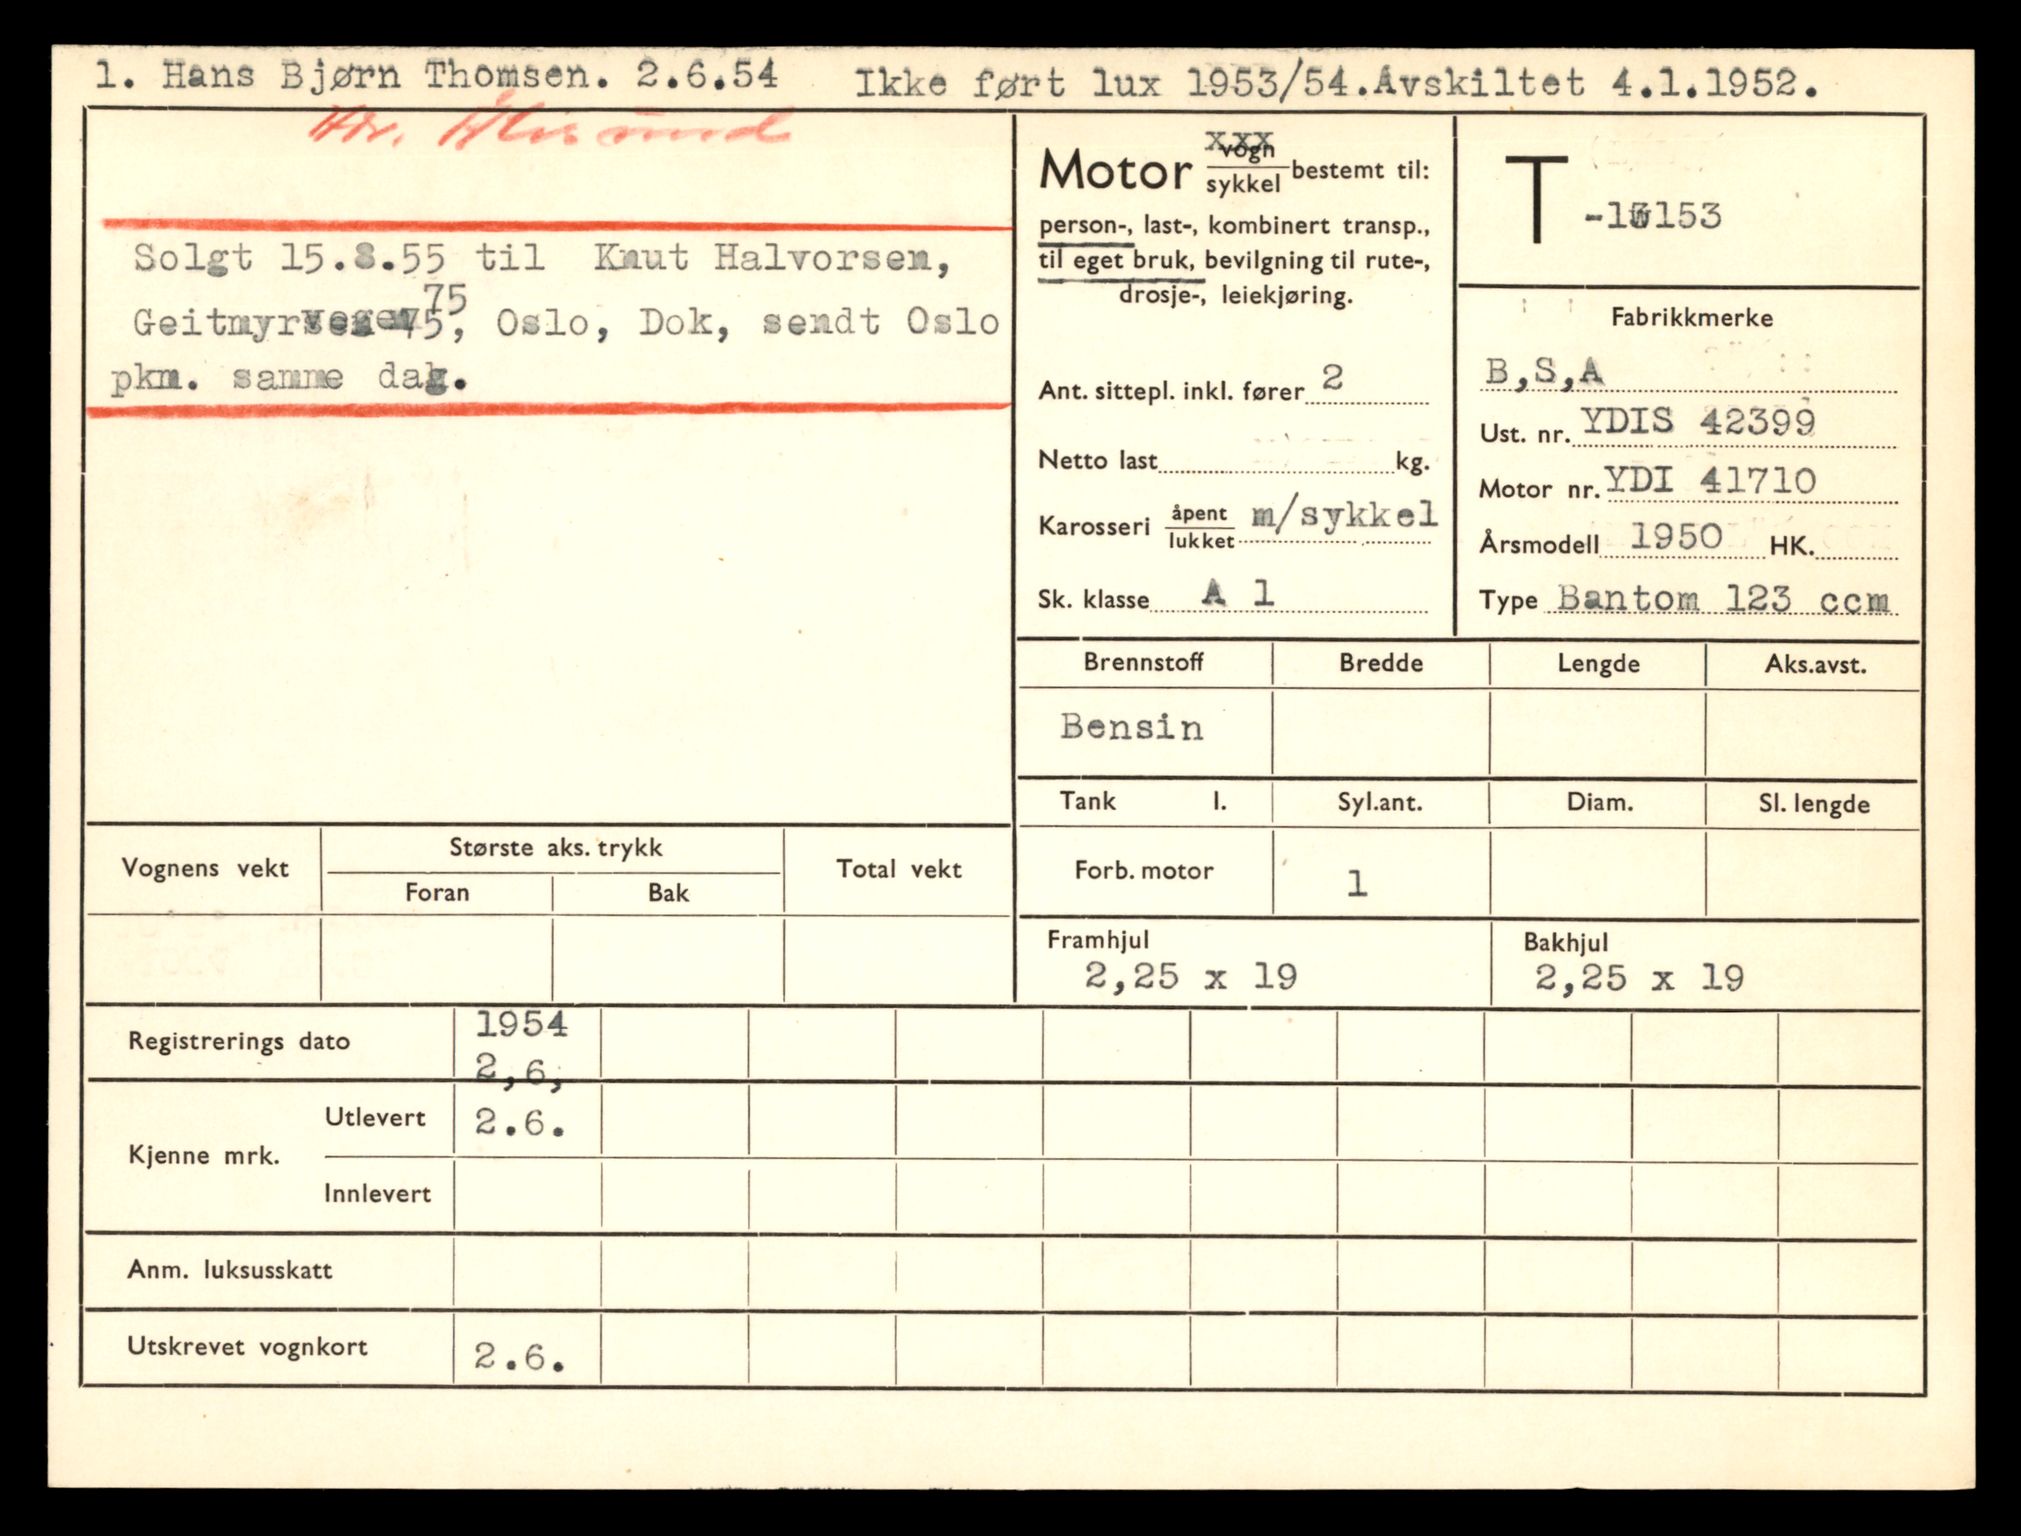 1. Hans Bjørn Thomsen. 2.6.54 Ikke ført lux 1953/54.Avskiltet 4.1.1952.
Solgt 15.8.55 til Knut Halvorsen,
Geitmyrvegen 75, Oslo, Dok, sendt Oslo
pkm. samme dag.
Motor vogn/sykkel bestemt til:
xxx
person-, last-, kombinert transp.,
til eget bruk, bevilgning til rute-,
drosje-, leiekjøring.
Ant. sittepl. inkl. fører 2
Netto last kg.
Karosseri åpent/lukket m/sykkel
Sk. klasse A 1
T
Fabrikkmerke
B,S,A
Ust. nr. YDIS 42399
Motor nr. YDI 41710
Årsmodell 1950 HK.
Type Bantom 123 ccm
Brennstoff Bredde Lengde Aks.avst.
Bensin
Tank l. Syl.ant. Diam. Sl. lengde
Forb. motor 1
Framhjul Bakhjul
2,25 x 19 2,25 x 19
Vognens vekt Største aks. trykk Total vekt
Foran Bak
Registrerings dato 1954
2,6,
Kjenne mrk. Utlevert 2.6.
Innlevert
Anm. luksusskatt
Utskrevet vognkort 2.6.